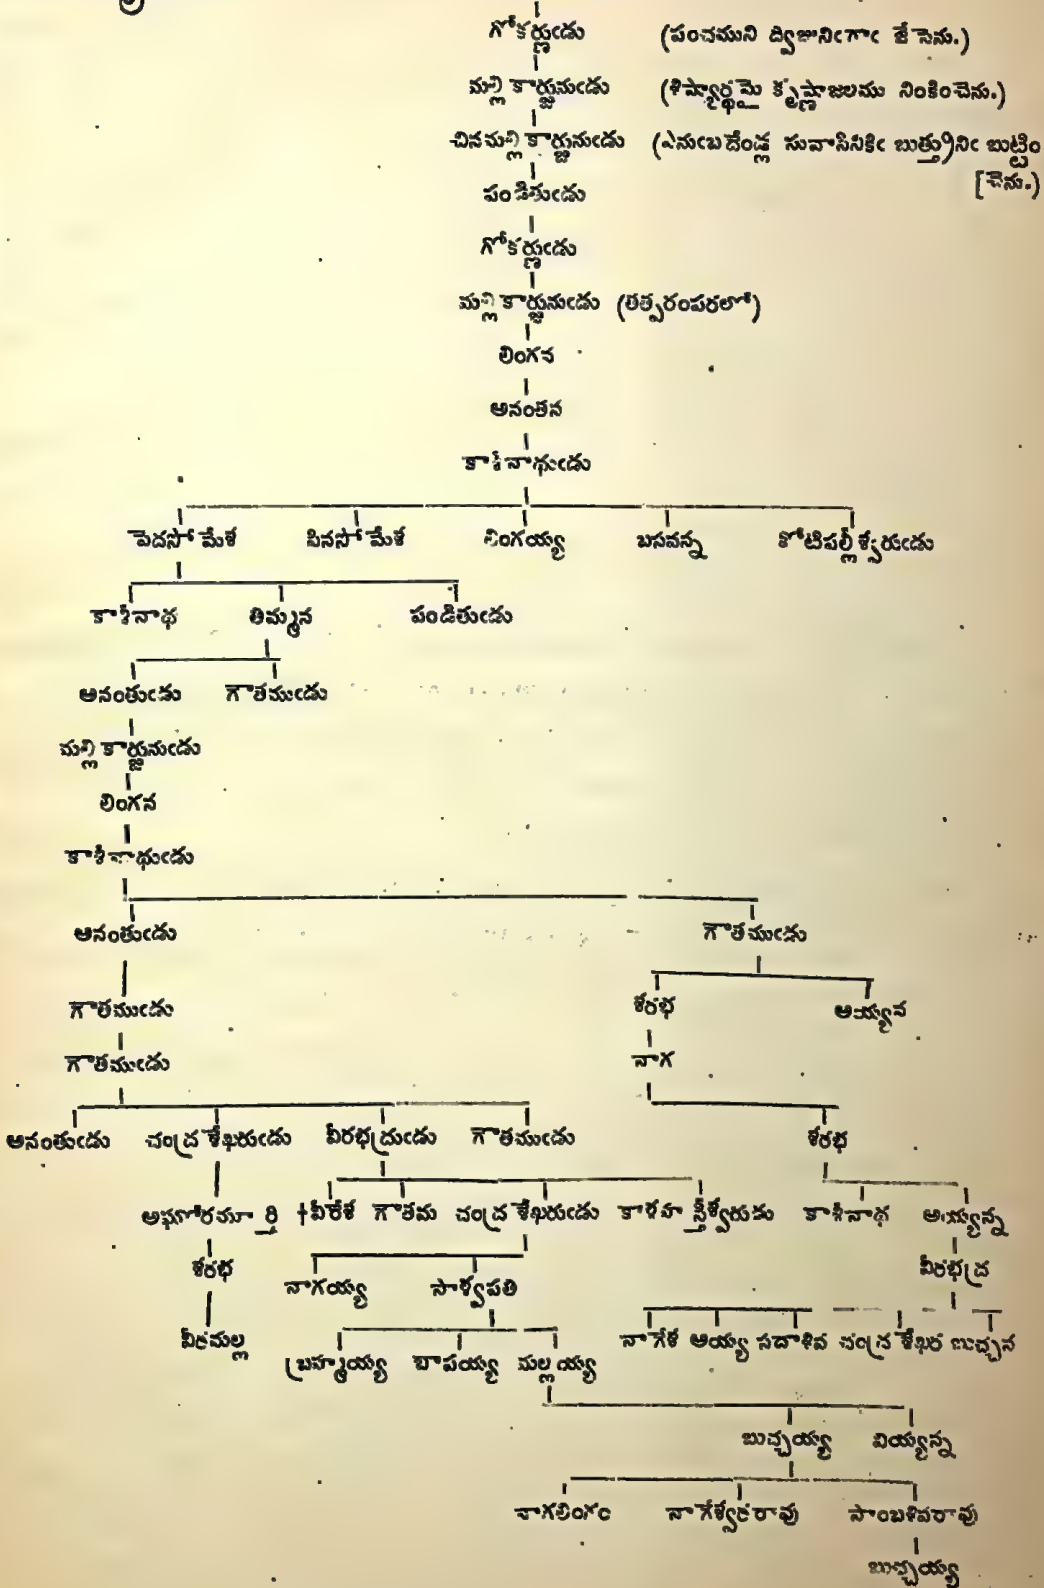 గోకర్ణుఁడు (పంచముని ద్విజునిఁగాఁ జేసెను.)
మల్లికార్జునుఁడు (శిష్యార్థమై కృష్ణాజలము నింకించెను.)
చినమల్లికార్జునుఁడు (ఎనుఁబదేండ్ల సువాసినికిఁ బుత్త్రునిఁ బుట్టిం
[చెను.)
పండితుఁడు
గోకర్ణుఁడు
మల్లికార్జునుఁడు (తత్పరంపరలో)
లింగన
అనంతన
కాశీనాథుఁడు
పెదసోమేశ పినసోమేశ లింగయ్య బసవన్న కోటిపల్లీశ్వరుఁడు
కాశీనాథ తిమ్మన పండితుఁడు
అనంతుఁడు గౌతముఁడు
మల్లికార్జునుఁడు
లింగన
కాశీనాథుఁడు
అనంతుఁడు గౌతముఁడు
శరభ అయ్యన
గౌతముఁడు
నాగ
గౌతముఁడు
అనంతుఁడు చంద్రశేఖరుఁడు వీరభద్రుఁడు గౌతముఁడు శరభ
అఘోరమూర్తి †వీరేశ గౌతమ చంద్రశేఖరుఁడు కాళహస్తీశ్వరుఁడు కాశీనాథ అయ్యన్న
శరభ నాగయ్య సాళ్వపతి వీరభద్ర
వీరమల్ల బ్రహ్మయ్య బాపయ్య మల్లయ్య నాగేశ అయ్య సదాశివ చంద్రశేఖర బుచ్చన
బుచ్చయ్య వియ్యన్న
నాగలింగం నాగేశ్వరరావు సాంబశివరావు
బుచ్చయ్య